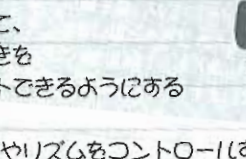 て、
きを
トできるようにする
やリズムをコントロールす